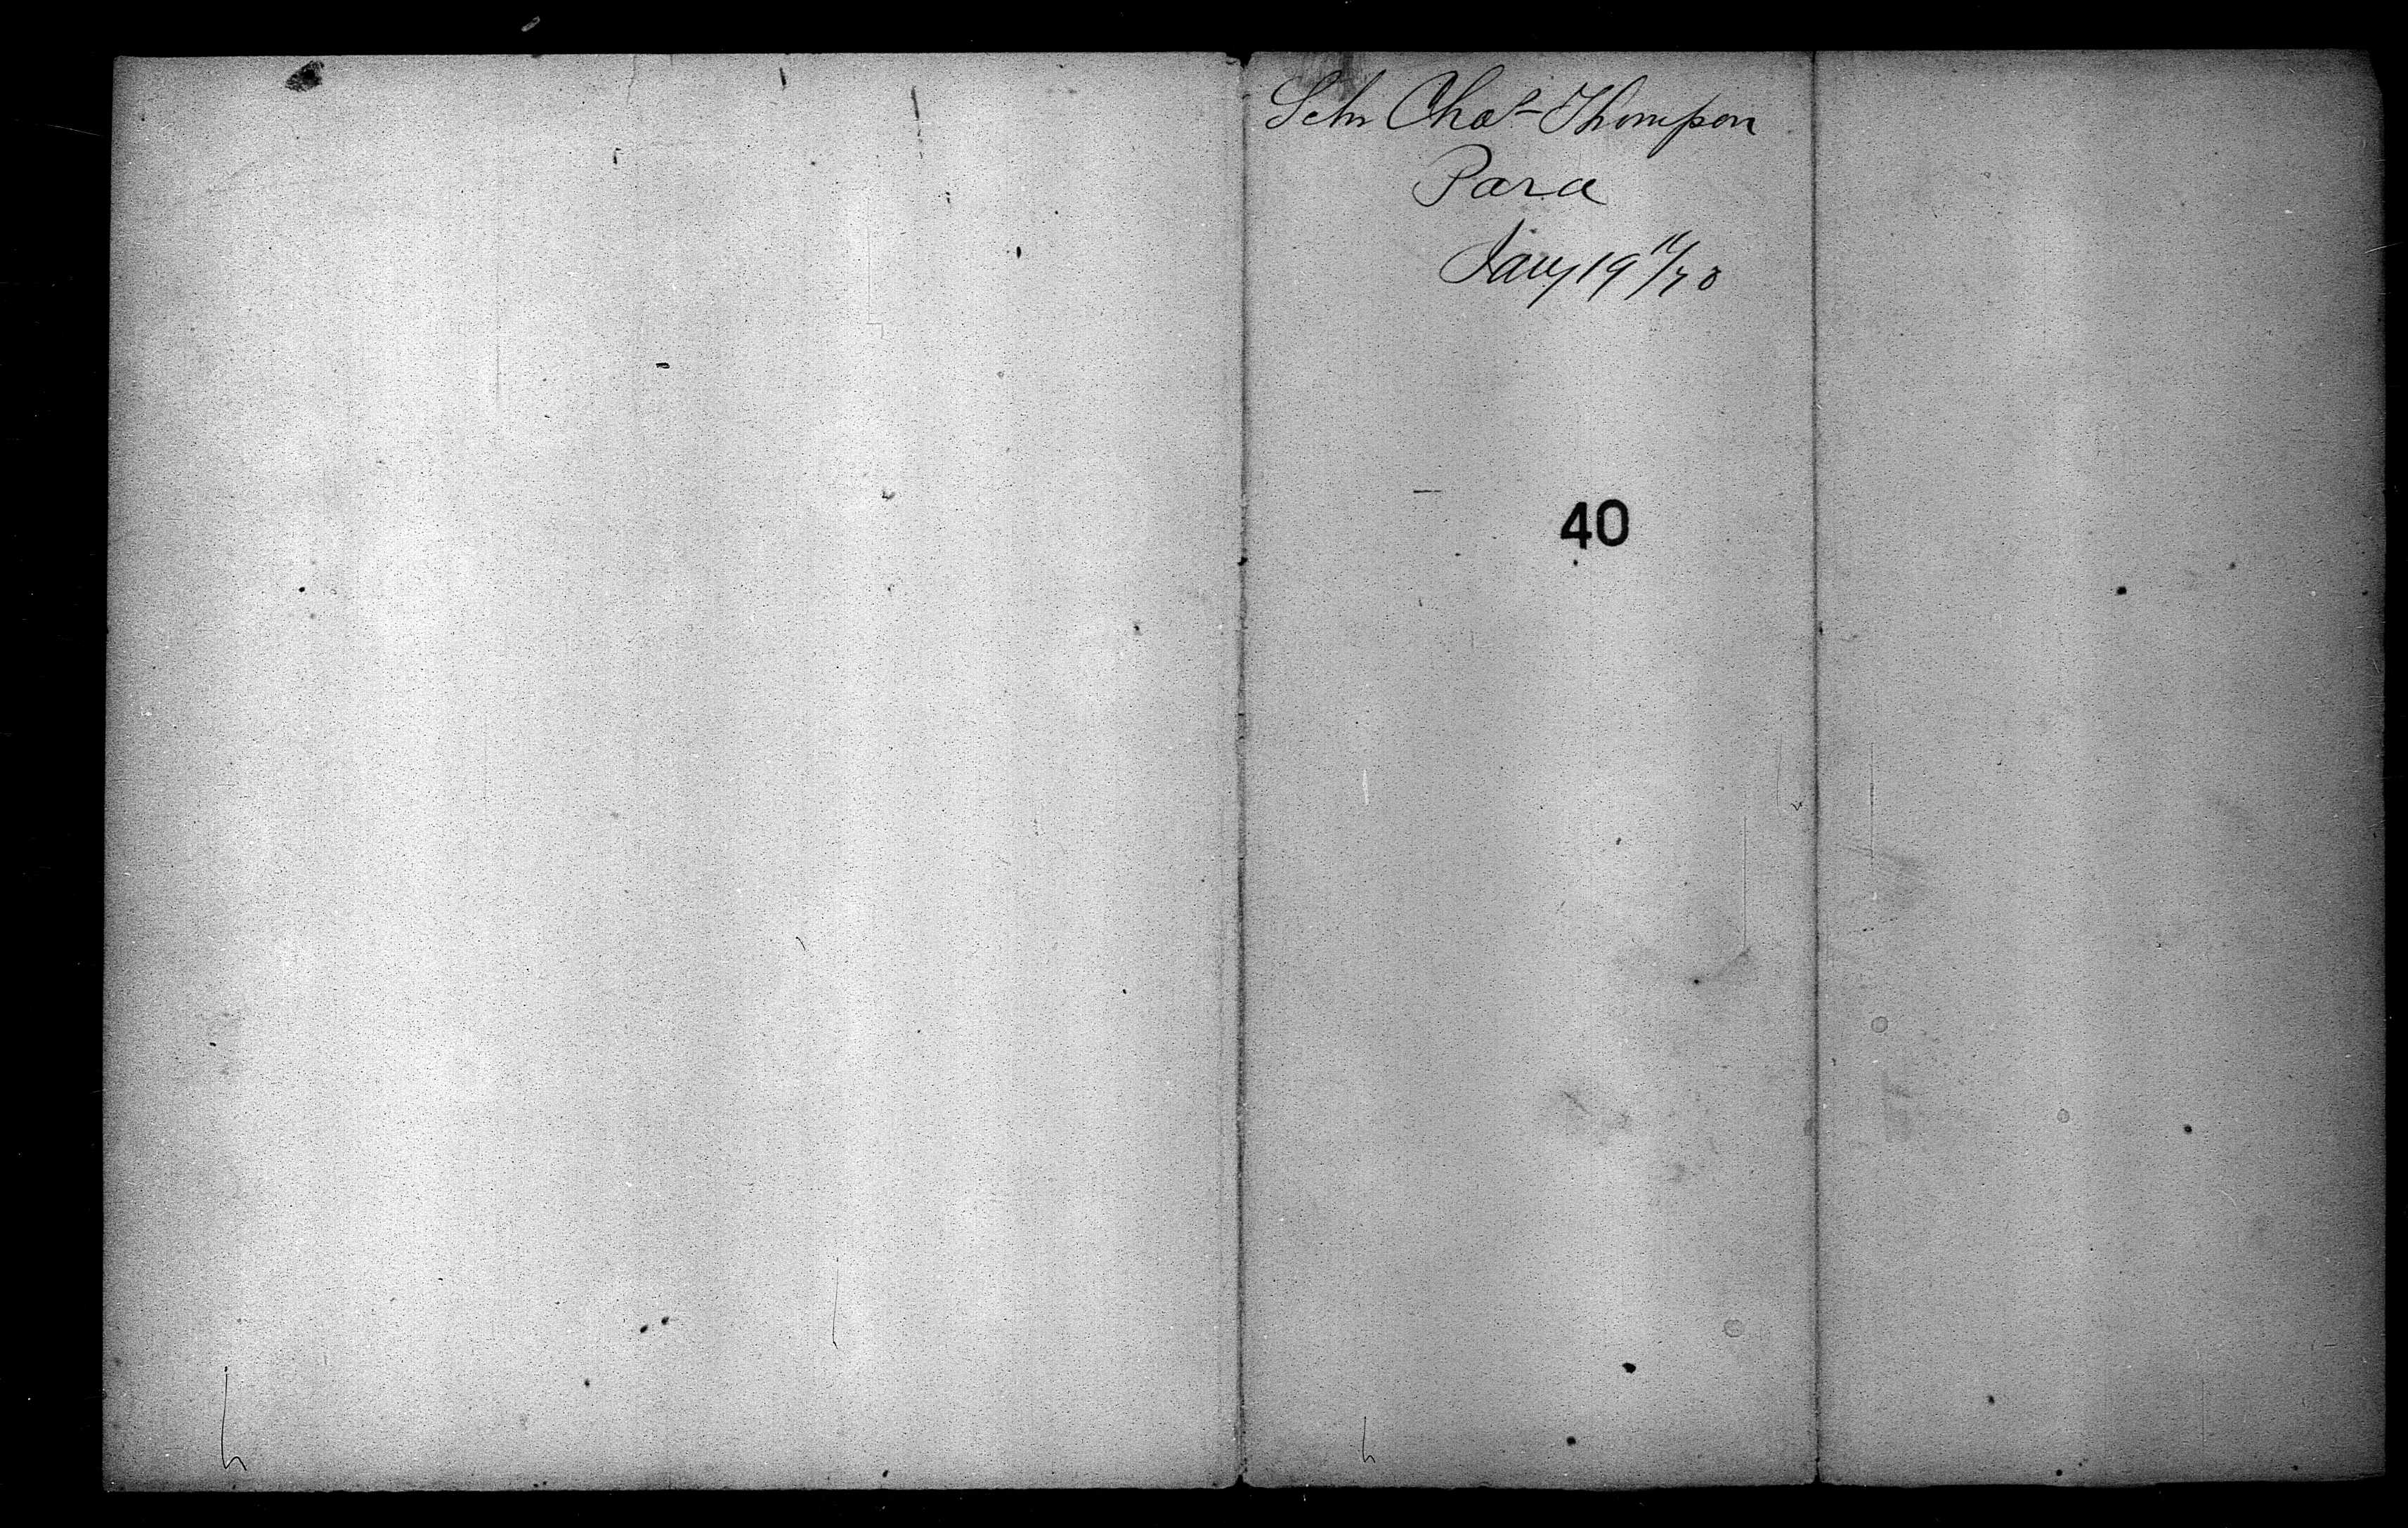 Schr Chas Thompson
Para
Jany 19th/70
40